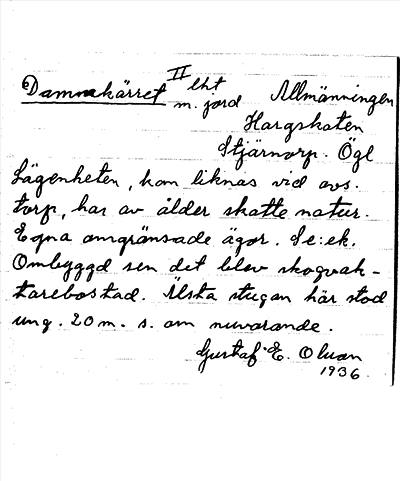 Dammkärret II lht Allmänningen
m. jord
Hargskaten
Stjärnorp. Ögl
Lägenheten, kan liknas vid avs.
torp, har av ålder skatte natur.
Egna omgränsade ägor. Se: ek.
Ombyggd sen det blev skogvak-
tarebostad. Älsta stugan här stod
ung. 20 m. s. om nuvarande.
Gustaf E. Olsson
1936.